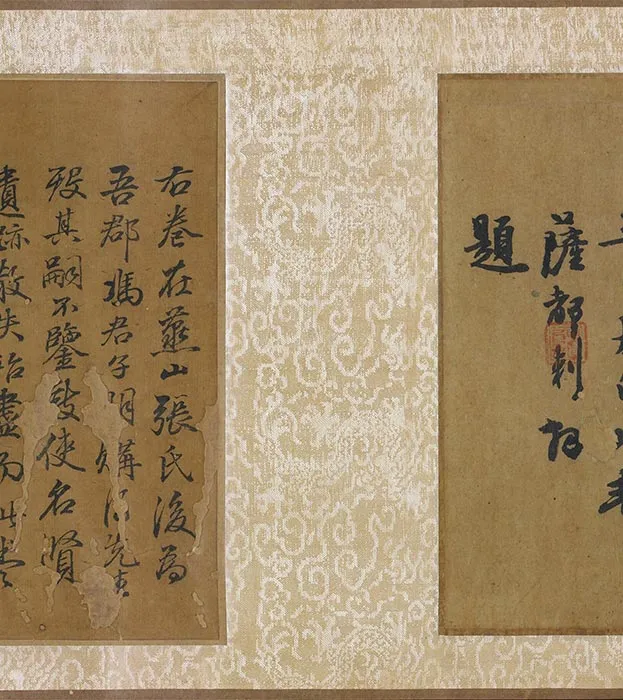 薩都剌拜
題
右卷在燕山張氏後為
吾郡馮君子明購得先生
歿其嗣不鑒使名賢
遺跡散失殆盡而此卷